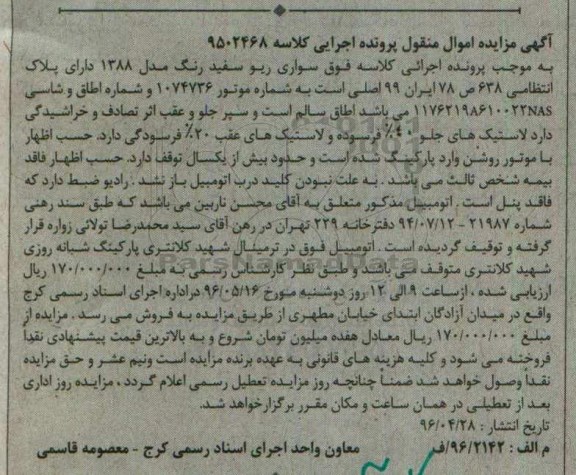 آگهی مزایده اموال منقول پرونده اجرایی کلاسه ۹۵۰۲۴۶۸
به موجب پرونده اجرائی کلاسه فوق سواری ریو سفید رنگ مدل ۱۳۸۸ دارای پلاک
انتظامی ۶۳۸ ص ۷۸ ایران ۹۹ اصلی است به شماره موتور ۱۰۷۴۷۳۶ و شماره اطاق و شاسی
۱۱۷۶۲۱۹۸۶۱۰۰۲۲NAS می باشد اطاق سالم است و سپر جلو و عقب اثر تصادف و خراشیدگی
دارد لاستیک های جلو ۴۰٪ فرسوده و لاستیک های عقب ۲۰٪ فرسودگی دارد. حسب اظهار
با موتور روشن وارد پارکینگ شده است و حدود بیش از یکسال توقف دارد. حسب اظهار فاقد
بیمه شخص ثالث می باشد . به علت نبودن کلید درب اتومبیل باز نشد . رادیو ضبط دارد که
فاقد پنل است . اتومبیل مذکور متعلق به آقای محسن نازبین می باشد که طبق سند رهنی
شماره ۲۱۹۸۷ - ۹۴/۰۷/۱۲ دفترخانه ۲۲۹ تهران در رهن آقای سید محمدرضا تولائی زواره قرار
گرفته و توقیف گردیده است . اتومبیل فوق در ترمینال شهید کلانتری پارکینگ شبانه روزی
شهید کلانتری متوقف می باشد و طبق نظر کارشناس رسمی به مبلغ ۱۷۰/۰۰۰/۰۰۰ ریال
ارزیابی شده ، ازساعت ۹ الی ۱۲ روز دوشنبه مورخ ۹۶/۰۵/۱۶ دراداره اجرای اسناد رسمی کرج
واقع در میدان آزادگان ابتدای خیابان مطهری از طریق مزایده به فروش می رسد . مزایده از
مبلغ ۱۷۰/۰۰۰/۰۰۰ ریال معادل هفده میلیون تومان شروع و به بالاترین قیمت پیشنهادی نقداً
فروخته می شود و کلیه هزینه های قانونی به عهده برنده مزایده است ونیم عشر و حق مزایده
نقداً وصول خواهد شد ضمناً چنانچه روز مزایده تعطیل رسمی اعلام گردد ، مزایده روز اداری
بعد از تعطیلی در همان ساعت و مکان مقرر برگزار خواهد شد.
تاریخ انتشار : ۹۶/۰۴/۲۸
م الف : ۹۶/۲۱۴۲/ف معاون واحد اجرای اسناد رسمی کرج - معصومه قاسمی
ParsNamadData